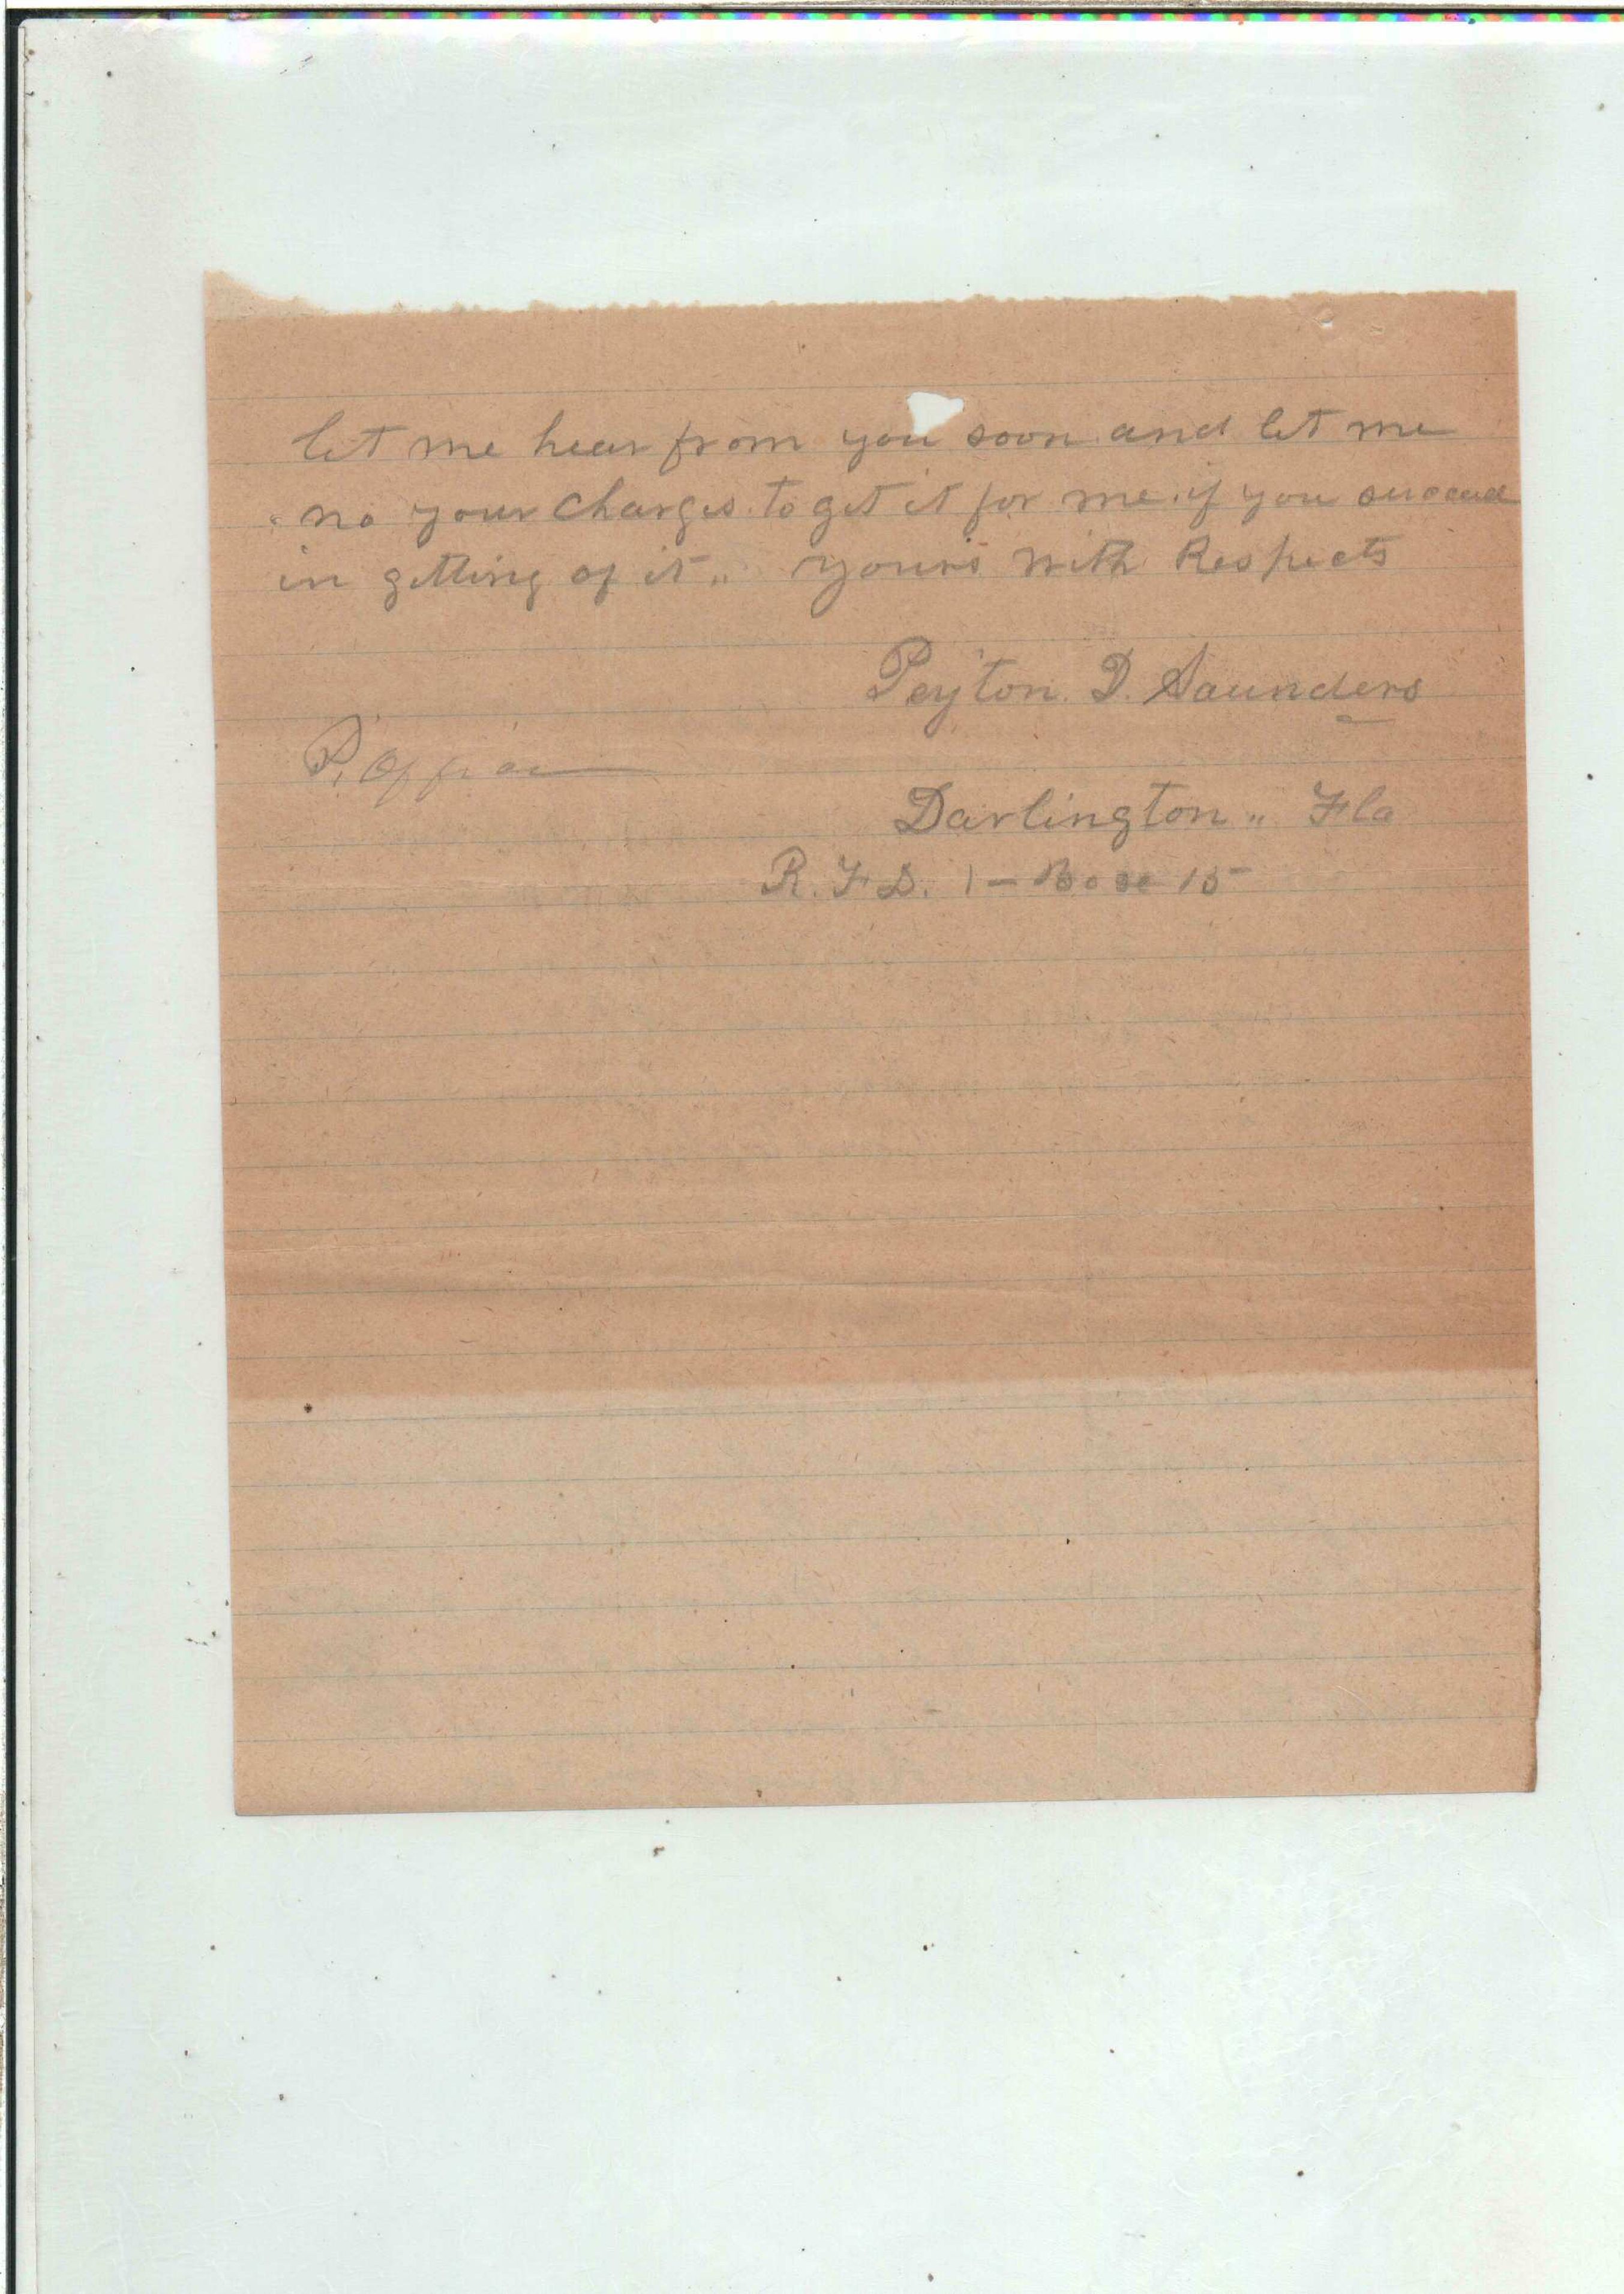 let me hear from you soon and let me
no your charges to get it for me. if you succeed
in getting of it.. yours with Respects
Peyton. D. Saunders
P. Office
Darlington.. Fla
R. F. D. 1 - Box 15